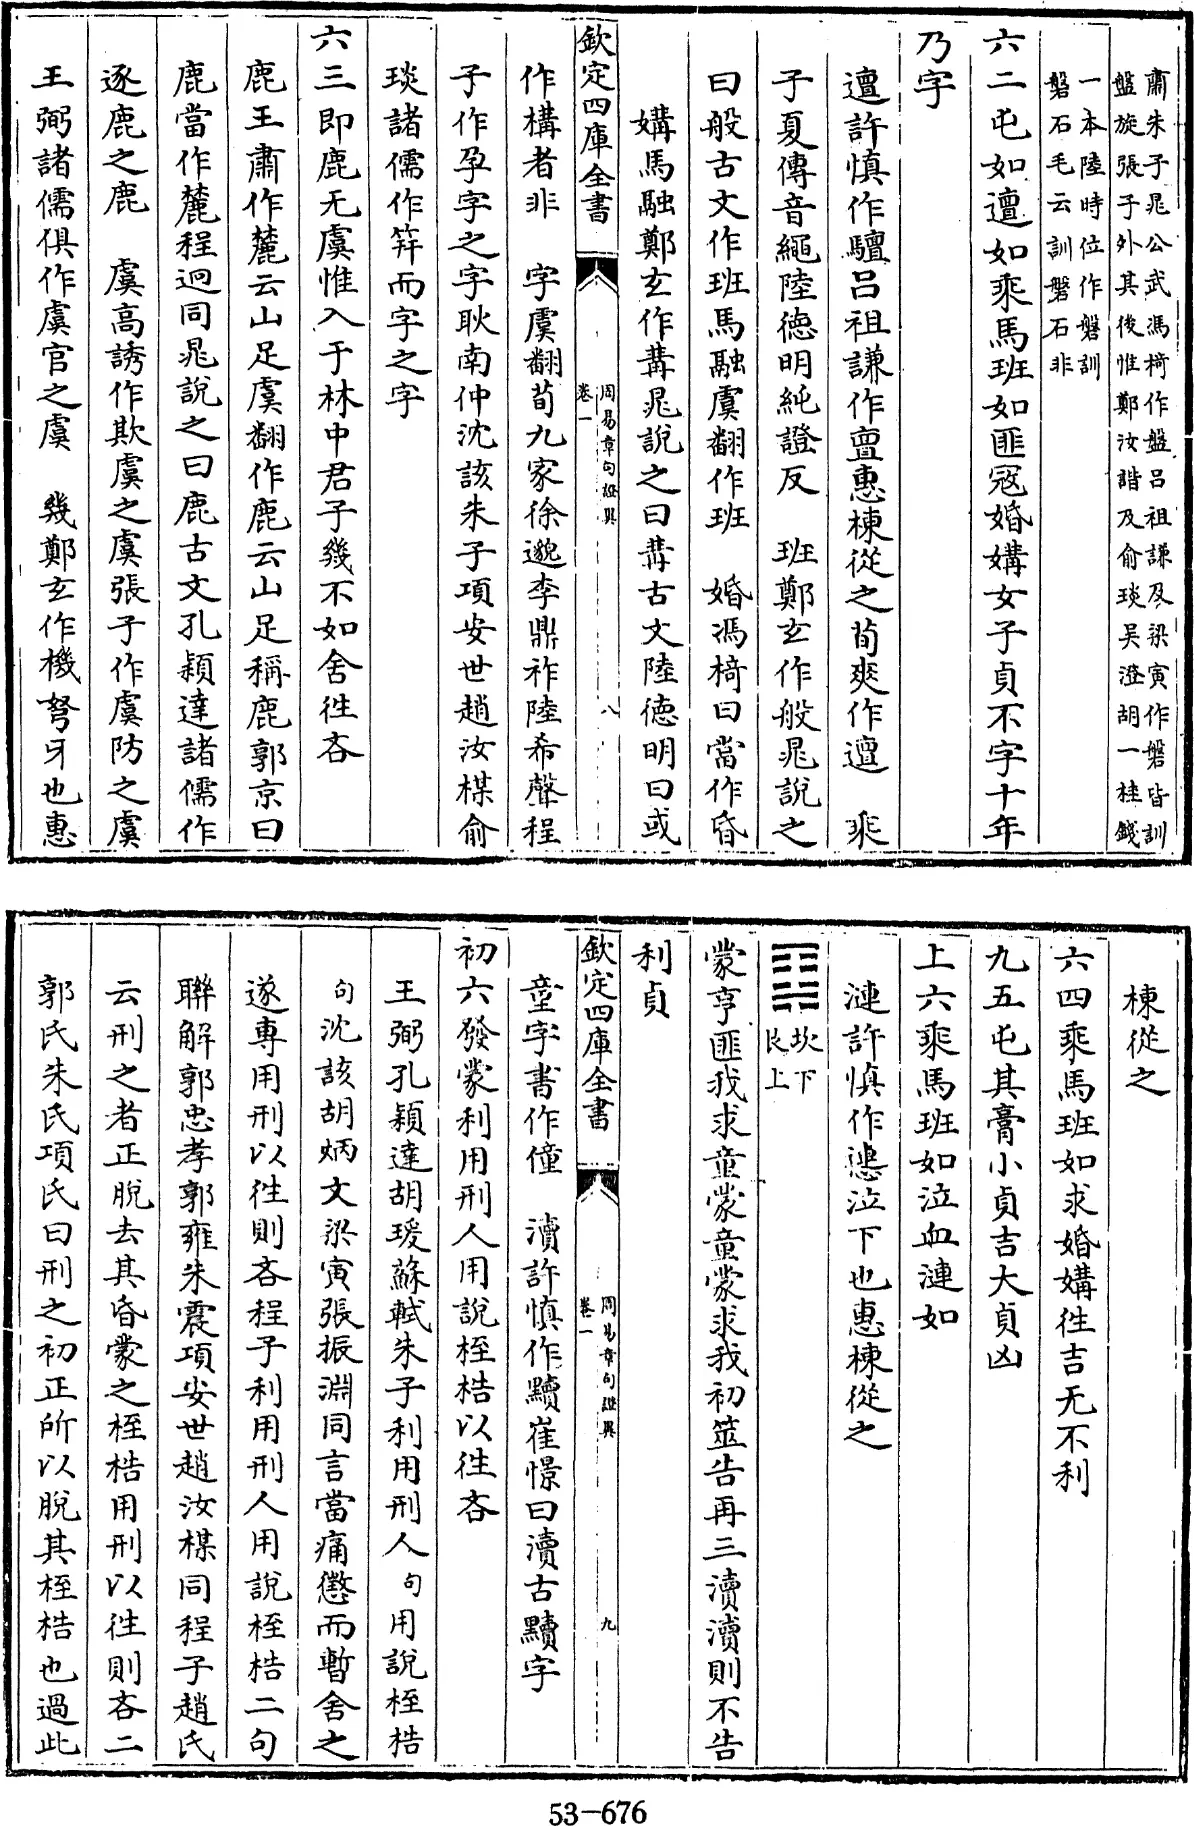 肅朱子晁公武馮椅作盤呂祖謙及梁寅作磐皆訓
盤旋張子外其後惟鄭汝諧及俞琰吳澄胡一桂錢
一本陸時位作磐訓
磐石毛云訓磐石非
六二屯如邅如乘馬班如匪寇婚媾女子貞不字十年
乃字
邅許慎作驙呂祖謙作亶惠棟從之荀爽作邅　乘
子夏傳音繩陸德明純證反　班鄭玄作般晁說之
曰般古文作班馬融虞翻作班　婚馮椅曰當作昏
媾馬融鄭玄作冓晁說之曰冓古文陸德明曰或
欽定四庫全書
周易章句證異
卷一
八
作構者非　字虞翻荀九家徐邈李鼎祚陸希聲程
子作孕字之字耿南仲沈該朱子項安世趙汝楳俞
琰諸儒作笄而字之字
六三即鹿无虞惟入于林中君子幾不如舍徃吝
鹿王肅作麓云山足虞翻作鹿云山足稱鹿郭京曰
鹿當作麓程迥同晁說之曰鹿古文孔穎達諸儒作
逐鹿之鹿　虞高誘作欺虞之虞張子作虞防之虞
王弼諸儒俱作虞官之虞　幾鄭玄作機弩牙也惠
棟從之
六四乘馬班如求婚媾徃吉无不利
九五屯其膏小貞吉大貞凶
上六乘馬班如泣血漣如
漣許慎作㦁泣下也惠棟從之
坎下
艮上
蒙亨匪我求童蒙童蒙求我初筮告再三瀆瀆則不告
利貞
欽定四庫全書
周易章句證異
卷一
九
童字書作僮　瀆許慎作黷崔憬曰瀆古黷字
初六發蒙利用刑人用說桎梏以徃吝
王弼孔穎達胡瑗蘇軾朱子利用刑人句用說桎梏
句沈該胡炳文梁寅張振淵同言當痛懲而暫舍之
遂專用刑以徃則吝程子利用刑人用說桎梏二句
聯解郭忠孝郭雍朱震項安世趙汝楳同程子趙氏
云刑之者正脫去其昏蒙之桎梏用刑以徃則吝二
郭氏朱氏項氏曰刑之初正所以脫其桎梏也過此
53-676